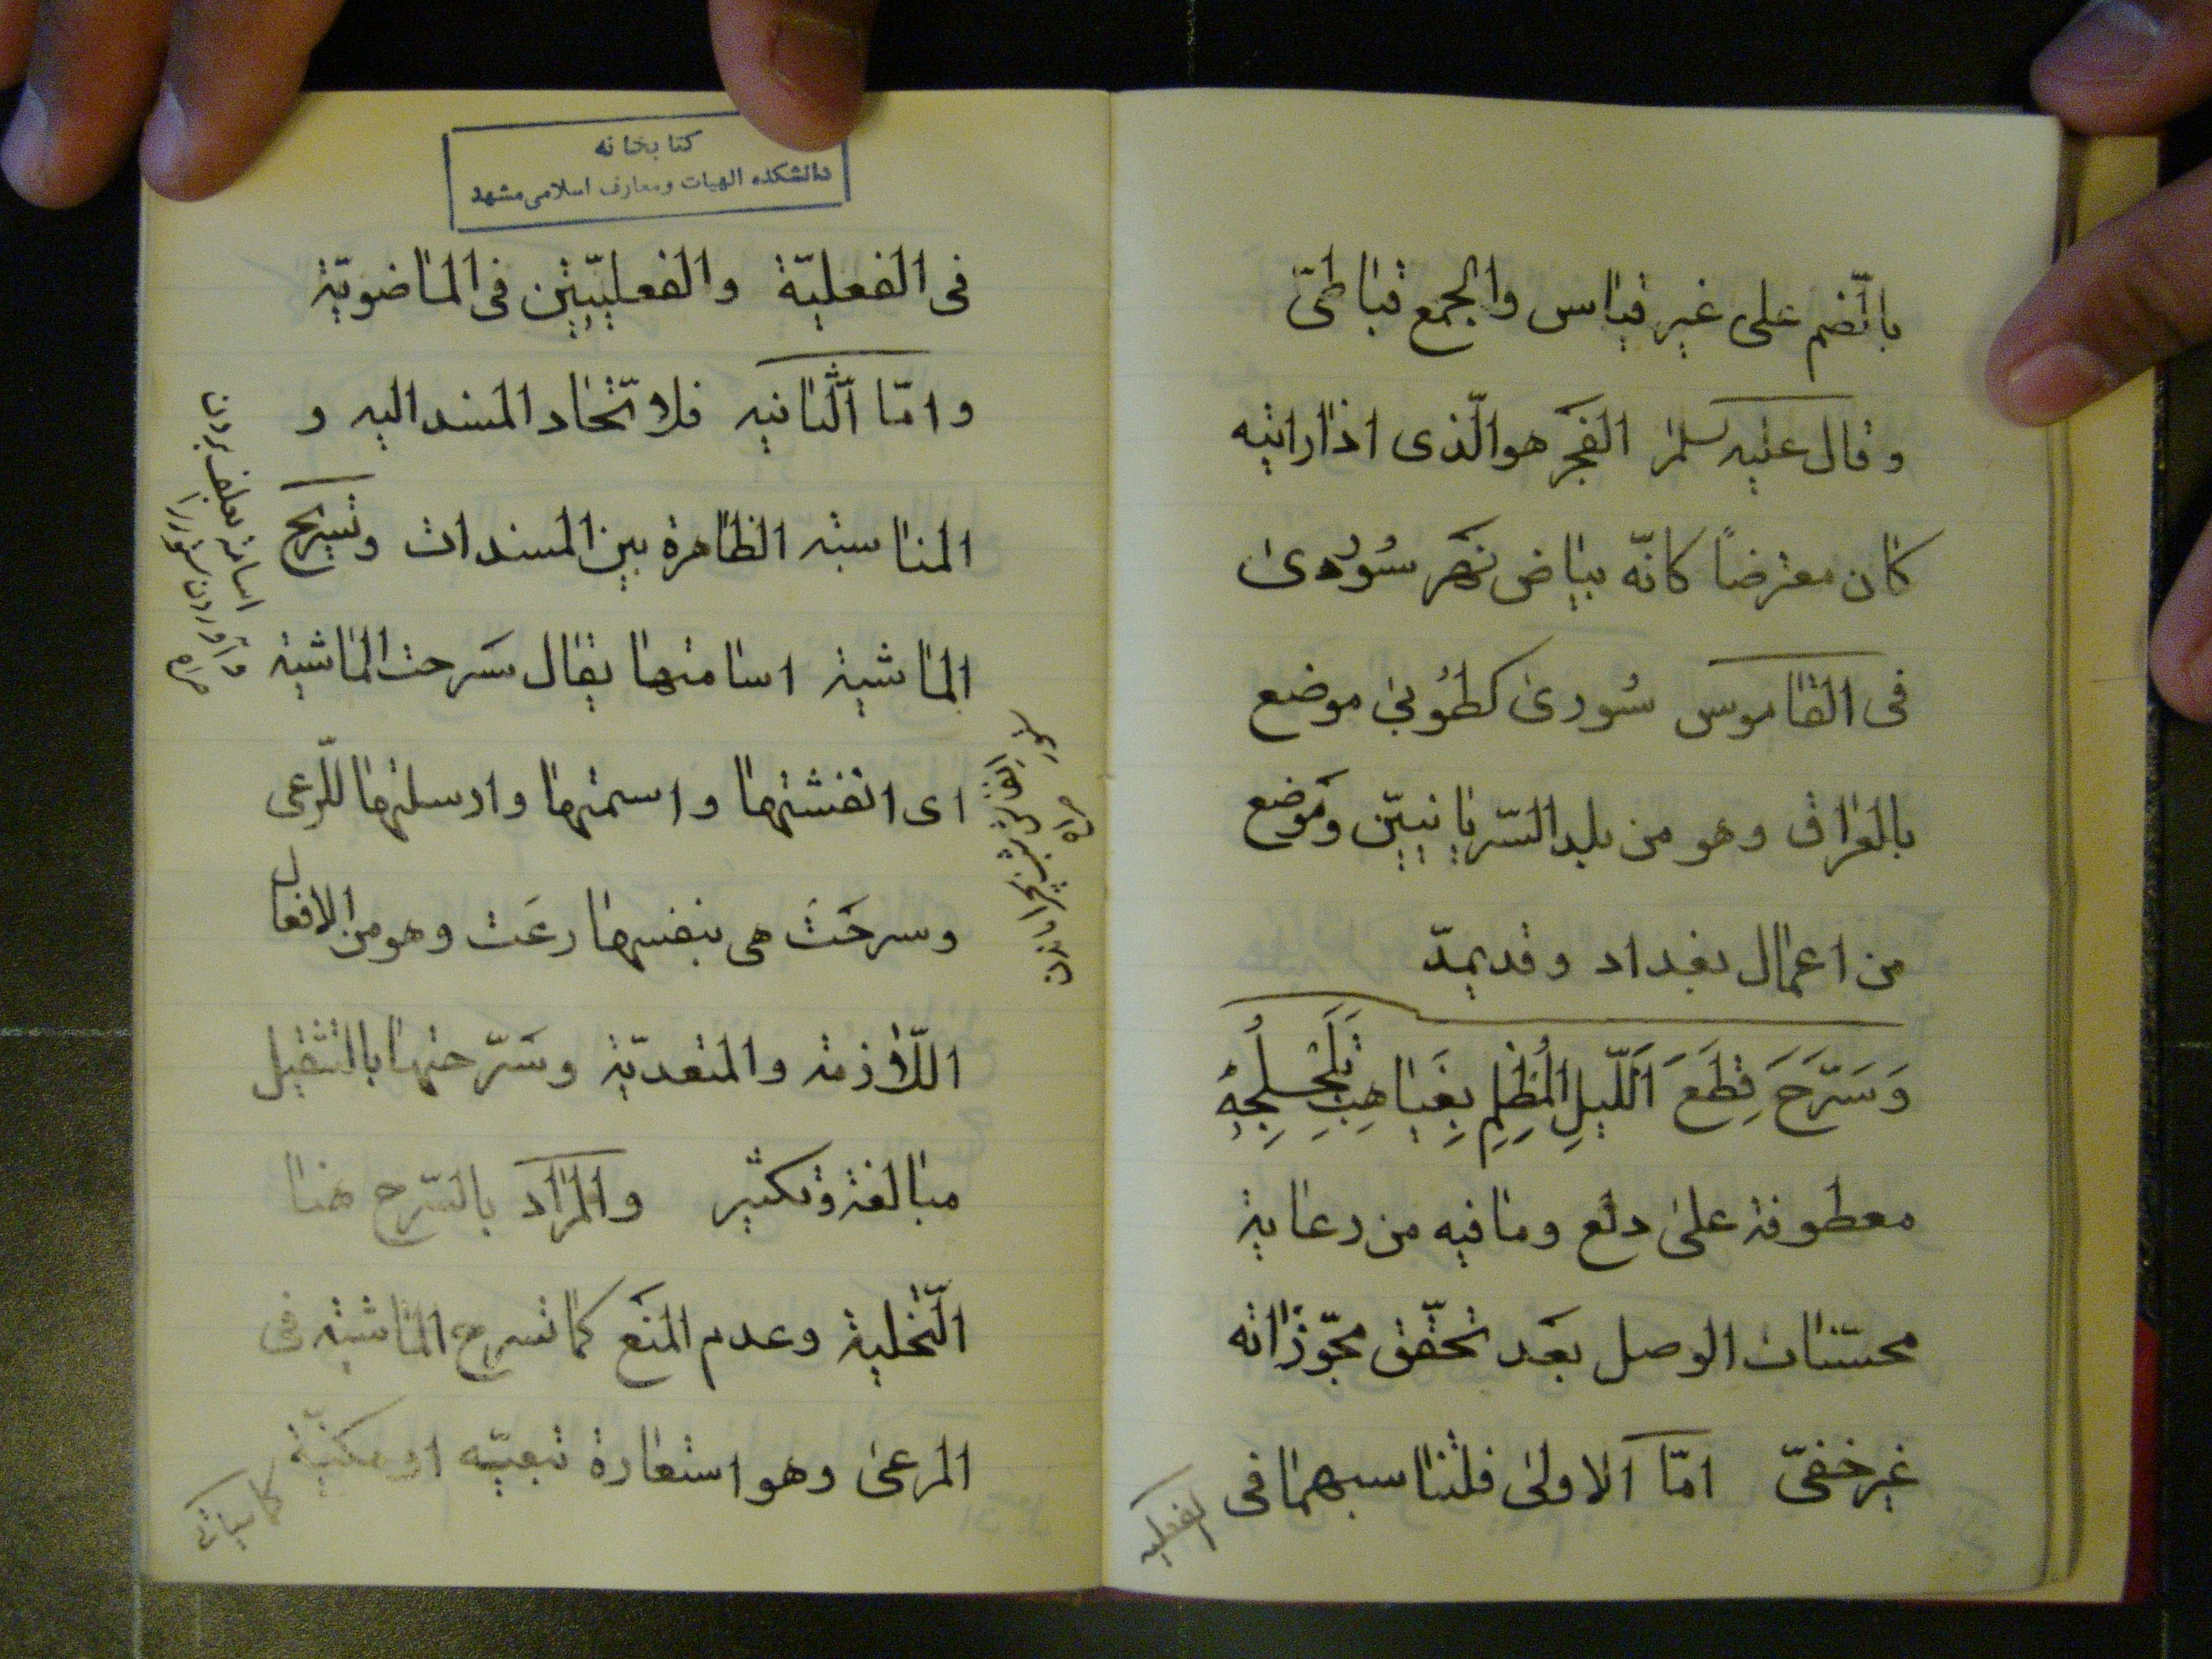 بالضم على غير قياس والجمع قباطىّ
وقال عليه السلم الفَجر هو الّذى اذا رايته
كان معترضاً كانّه بياض نَهَر سُورى
فى القاموس سُورى كطُوبى موضع
بالعراق وهو من بلد السّريانيّين ومَوضع
من اعمال بغداد وقد يمدّ
وَسَرَّحَ قِطَعَ اَللَّيلِ المُظلِمِ بِغَياهِبِ تَلَجلُجِهِ
معطوفة على دلع وما فيه من رعاية
محسّنات الوصل بَعد تحقّق مجوّزاته
غير خفىّ امّا الاولى فلتناسبهما فى
الفعليه
كتابخانه
دانشكده الهيات ومعارف اسلامى مشهد
فى الفعليّة والفعليّتين فى الماضويّة
وامّا الثّانيه فلاتّحاد المسند اليه و
المناسبة الظاهرة بين المسندات وتسريح
الماشية اسامتها يقال سَرحت الماشية
اى انفشتها واسمتها وارسلتها للرّعى
وسرحَتْ هى بنفسها رعَت وهو من الافعال
اللّازمة والمتعديّة وسَرّحتها بالتثقيل
مبالغة وتكثير والمراد بالسّرح هنا
الّتخلية وعدم المنَع كما تسرح الماشية فى
المرعى وهو استعارة تبعيّه او مكنيّة
كما سياتى